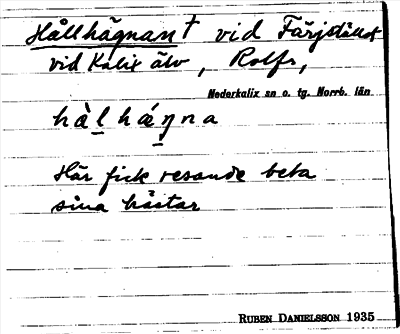 Hållhägnan † vid Färjstället
vid Kalix älv, Rolfs,
Nederkalix sn o. tg. Norrb. län
hå̀l háŋna
Här fick resande beta
sina hästar
RUBEN DANIELSSON 1935